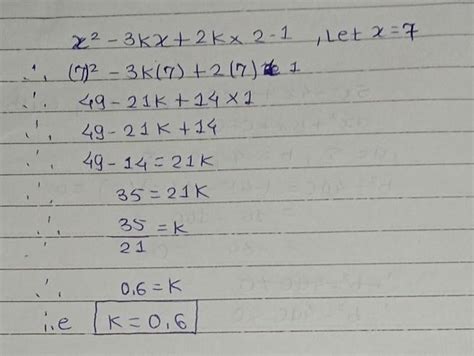 x² - 3kx + 2k × 2-1 , Let x = 7
∴ (7)² - 3k(7) + 2(7) 1
∴ 49 - 21k + 14 × 1
∴ 49 - 21k + 14
∴ 49 - 14 = 21k
∴ 35 = 21k
∴ 35/21 = k
∴ 0.6 = k
i.e k = 0.6